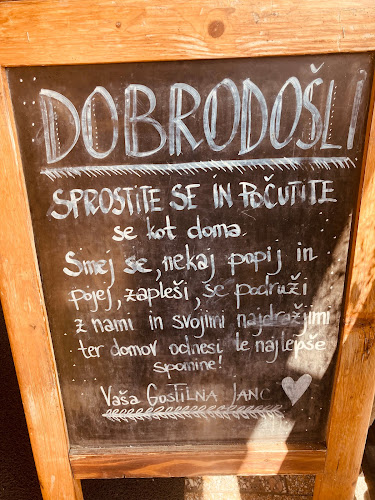 DOBRODOŠLI
SPROSTITE SE IN POČUTITE
se kot doma.
Smej se, nekaj popij in
pojej, zapleši, se podruži
z nami in svojimi najdražjimi
ter domov odnesi le najlepše
spomine!
Vaša GOSTILNA JANC